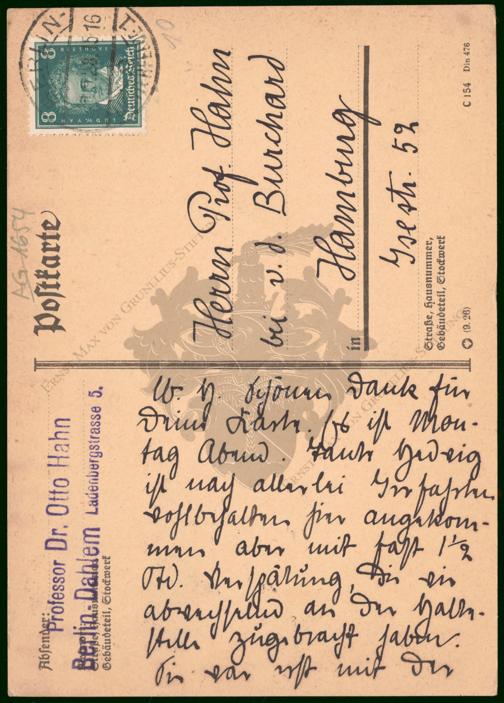 Postkarte
Deutsches Reich
8 8
Herrn Prof. Hahn
bei v. d. Burchard
in Hamburg
Isestr. 52
Straße, Hausnummer,
Gebäudeteil, Stockwerk
C 154 Din 476
(9.26)
AG-1654
10
Absender:
Professor Dr. Otto Hahn
Berlin-Dahlem Ladenbergstrasse 5.
Gebäudeteil, Stockwerk
Ernst Max von Grunelius-Stiftung
Schönen Dank für
Deine Karte. Es ist Mon-
tag Abend. Tante Hedwig
ist nach allerlei Irrfahrten
wohlbehalten hier angekom-
men aber mit fast 1 1/2
Std. Verspätung, die wir
abwechselnd an der Halte-
stelle zugebracht haben.
Sie war erst mit der